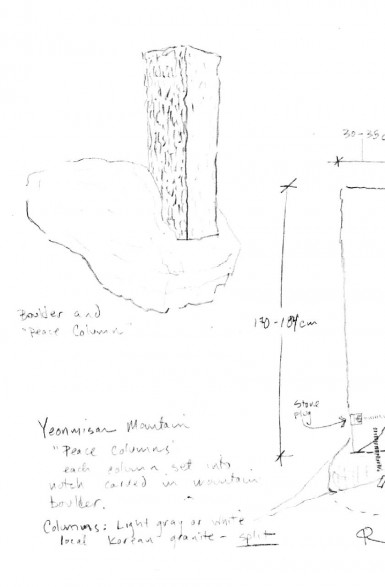 30-35c
Boulder and
"Peace Column"
cm
stone
plug
Yeonmisan Mountain
"Peace Columns"
each column set into
notch carved in mountain
boulder.
Columns: Light gray or white
local Korean granite - split